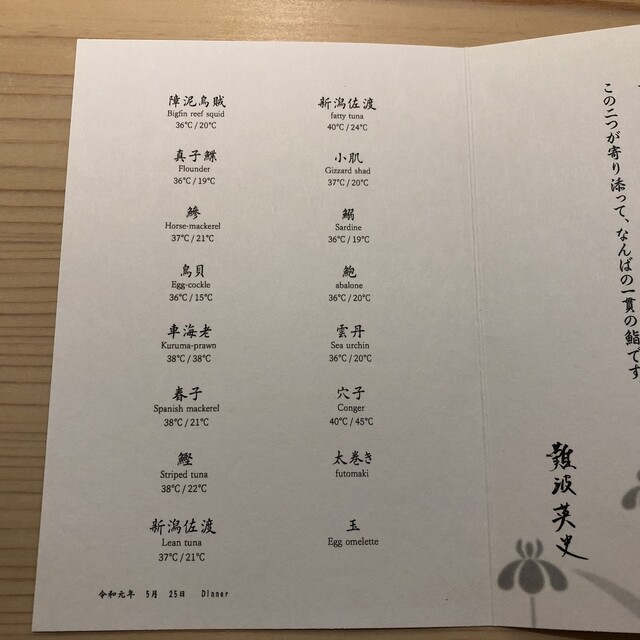 障泥烏賊
Bigfin reef squid
36℃ / 20℃
真子鰈
Flounder
36℃ / 19℃
鰺
Horse-mackerel
37℃ / 21℃
鳥貝
Egg-cockle
36℃ / 15℃
車海老
Kuruma-prawn
38℃ / 38℃
春子
Spanish mackerel
38℃ / 21℃
鰹
Striped tuna
38℃ / 22℃
新潟佐渡
Lean tuna
37℃ / 21℃
新潟佐渡
fatty tuna
40℃ / 24℃
小肌
Gizzard shad
37℃ / 20℃
鰯
Sardine
36℃ / 19℃
鮑
abalone
36℃ / 20℃
雲丹
Sea urchin
36℃ / 20℃
穴子
Conger
40℃ / 45℃
太巻き
futomaki
玉
Egg omelette
令和元年 5月 25日 Dinner
この二つが寄り添って、なんばの一貫の鮨です
難波英史